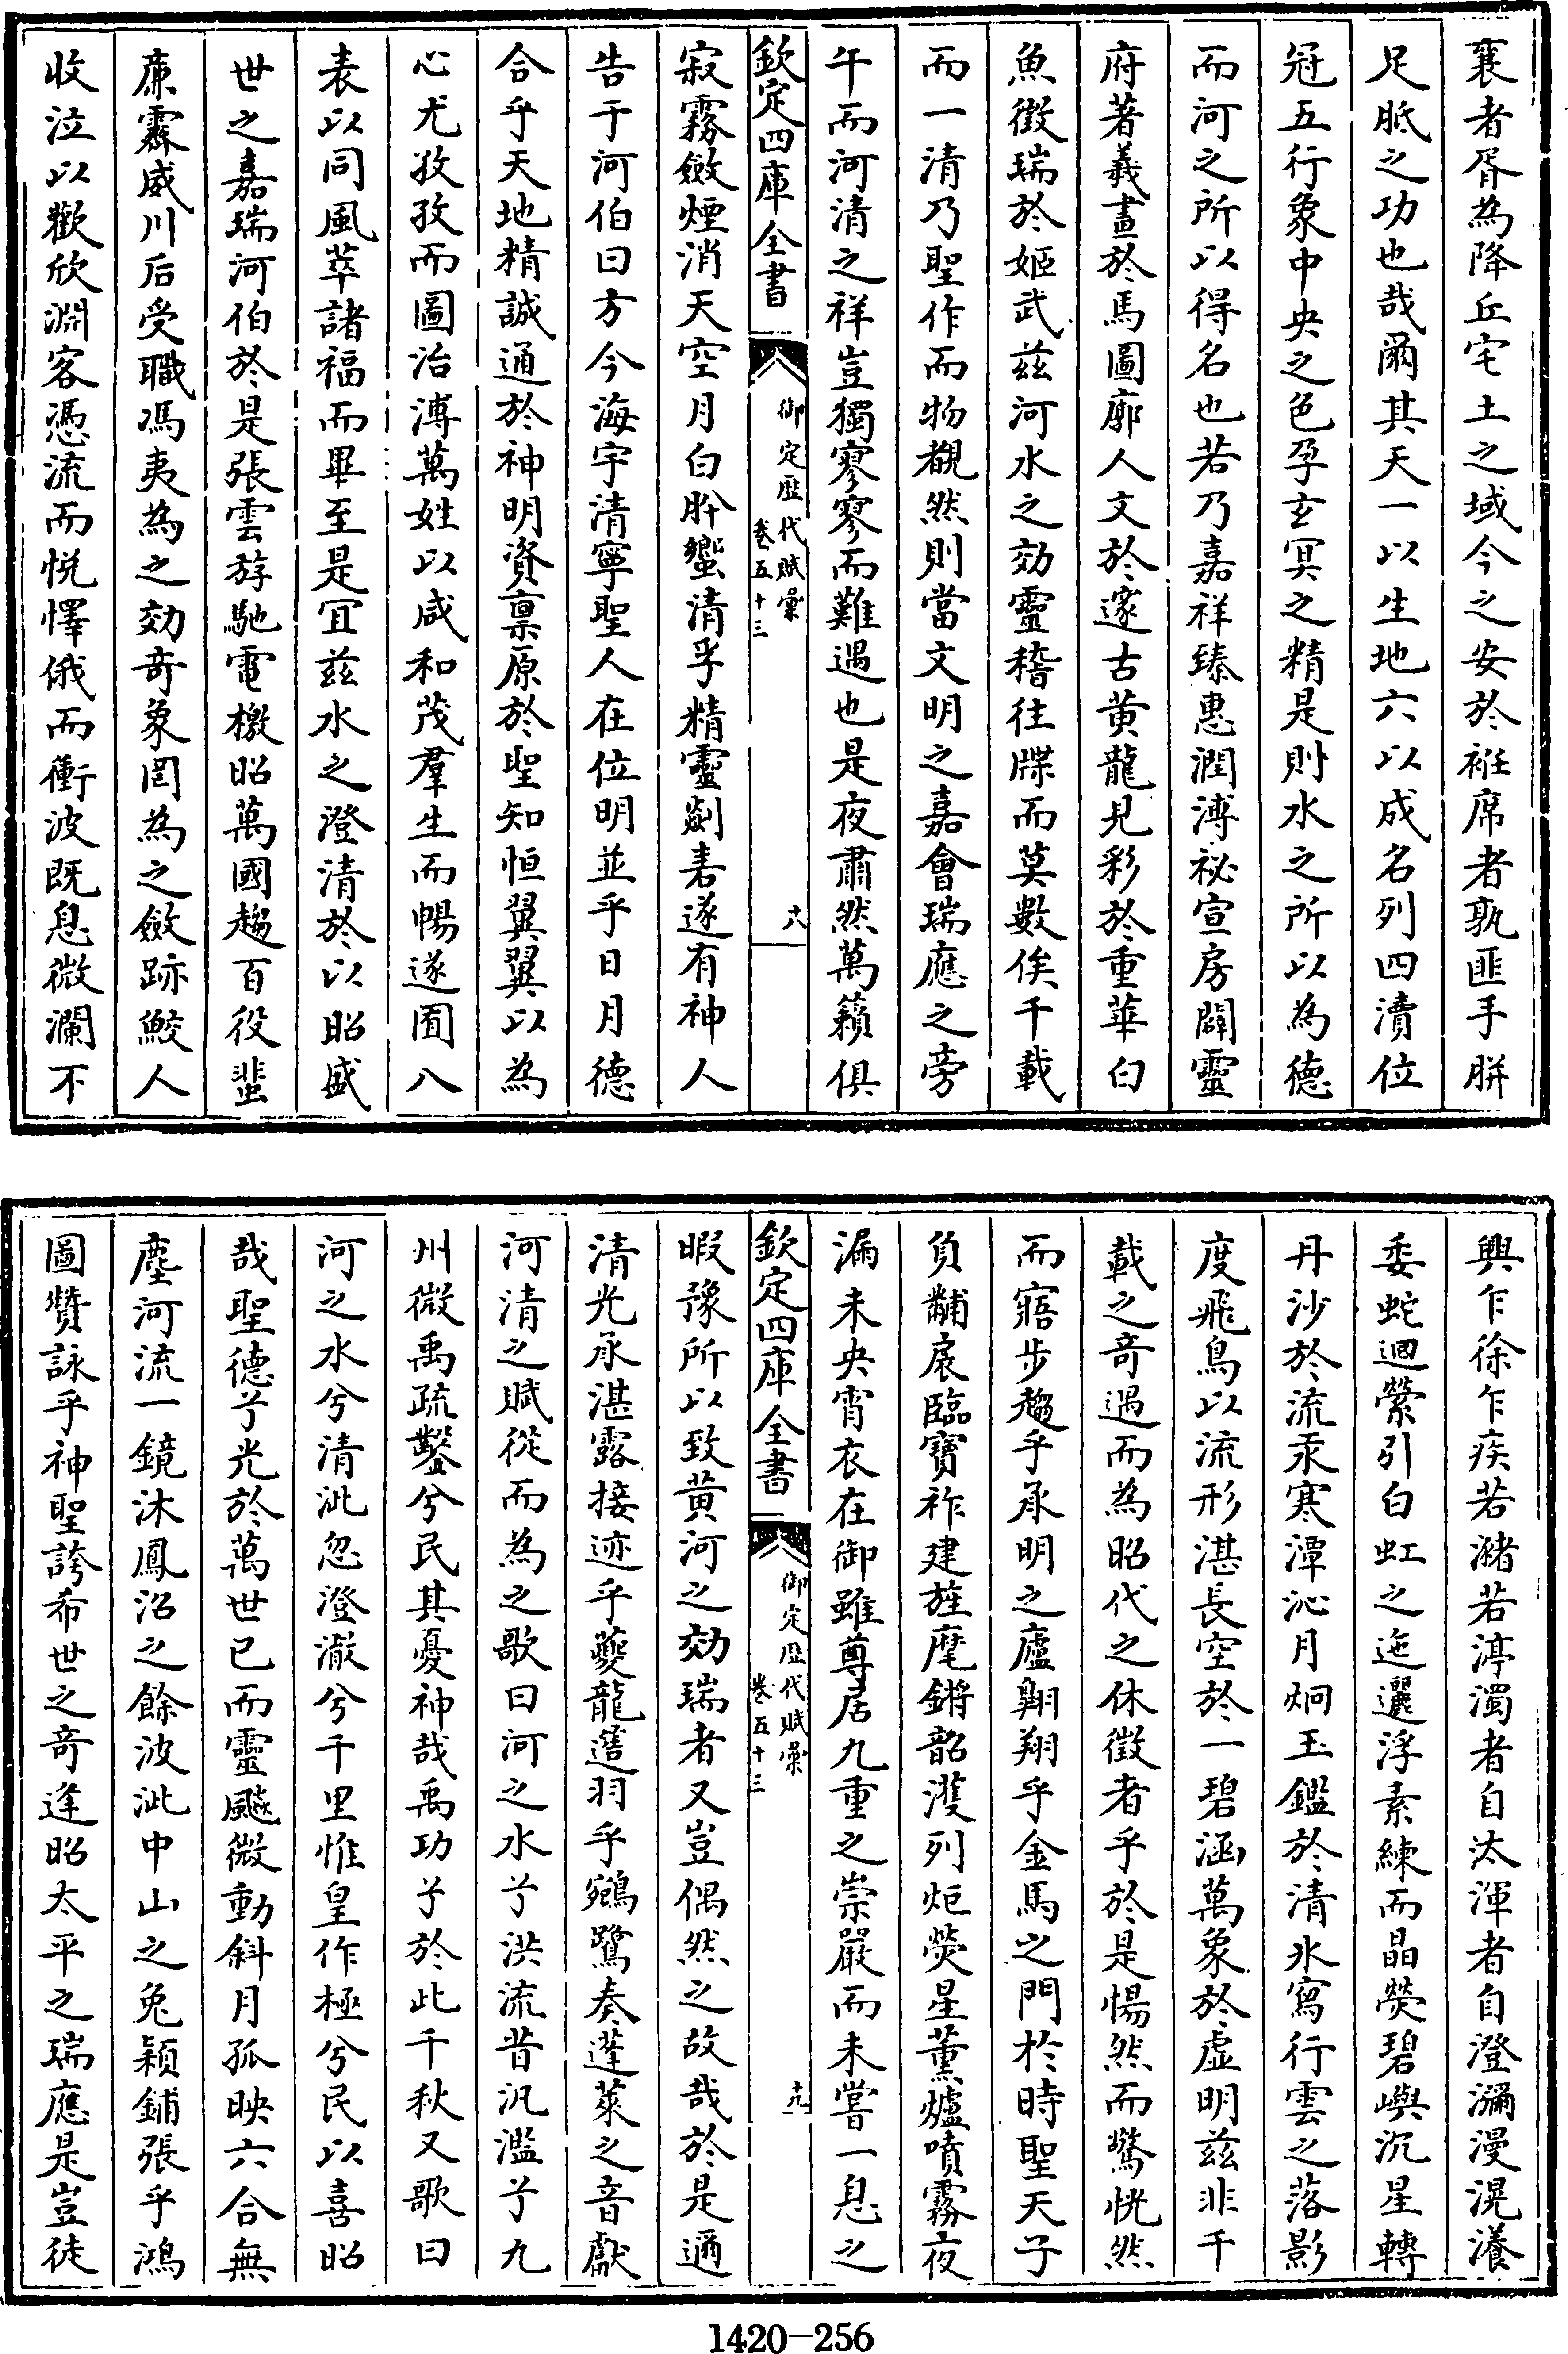 襄者胥為降丘宅土之域今之安於袵席者孰匪手胼
足胝之功也哉爾其天一以生地六以成名列四瀆位
冠五行象中央之色孕玄冥之精是則水之所以為德
而河之所以得名也若乃嘉祥臻惠潤溥祕宣房闢靈
府著羲畫於馬圖廓人文於邃古黄龍見彩於重華白
魚徵瑞於姬武兹河水之効靈稽往牒而莫數俟千載
而一清乃聖作而物覩然則當文明之嘉會瑞應之旁
午而河清之祥豈獨寥寥而難遇也是夜肅然萬籟俱
欽定四庫全書
御定歴代賦彙
卷五十三
十八
寂霧斂煙消天空月白肸蠁清孚精靈剡砉遂有神人
告于河伯曰方今海宇清寧聖人在位明並乎日月德
合乎天地精誠通於神明資禀原於聖知恒翼翼以為
心尤孜孜而圖治溥萬姓以咸和茂羣生而暢遂囿八
表以同風萃諸福而畢至是宜兹水之澄清於以昭盛
世之嘉瑞河伯於是張雲斿馳電檄昭萬國趨百役蜚
亷霽威川后受職馮夷為之効奇象罔為之斂跡鮫人
收泣以歡欣淵客憑流而悦懌俄而衝波既息微瀾不
興乍徐乍疾若瀦若渟濁者自汰渾者自澄瀰漫滉瀁
委蛇迴縈引白虹之迤邐浮素練而晶熒碧嶼沉星轉
丹沙於流汞寒潭沁月炯玉鑑於清氷寫行雲之落影
度飛鳥以流形湛長空於一碧涵萬象於虚明兹非千
載之奇遇而為昭代之休徵者乎於是惕然而驚恍然
而寤步趨乎承明之廬翺翔乎金馬之門於時聖天子
負黼扆臨寶祚建旌麾鏘韶濩列炬熒星薰爐噴霧夜
漏未央宵衣在御雖尊居九重之崇嚴而未嘗一息之
欽定四庫全書
御定歴代賦彙
卷五十三
十九
暇豫所以致黄河之効瑞者又豈偶然之故哉於是邇
清光承湛露接迹乎夔龍簉羽乎鵷鷺奏蓬萊之音獻
河清之賦從而為之歌曰河之水兮洪流昔汎濫兮九
州微禹疏鑿兮民其憂神哉禹功兮於此千秋又歌曰
河之水兮清泚忽澄澈兮千里惟皇作極兮民以喜昭
哉聖德兮光於萬世已而靈飈微動斜月孤映六合無
塵河流一鏡沐鳳沼之餘波泚中山之兔穎鋪張乎鴻
圖贊詠乎神聖誇希世之奇逢昭太平之瑞應是豈徒
1420-256